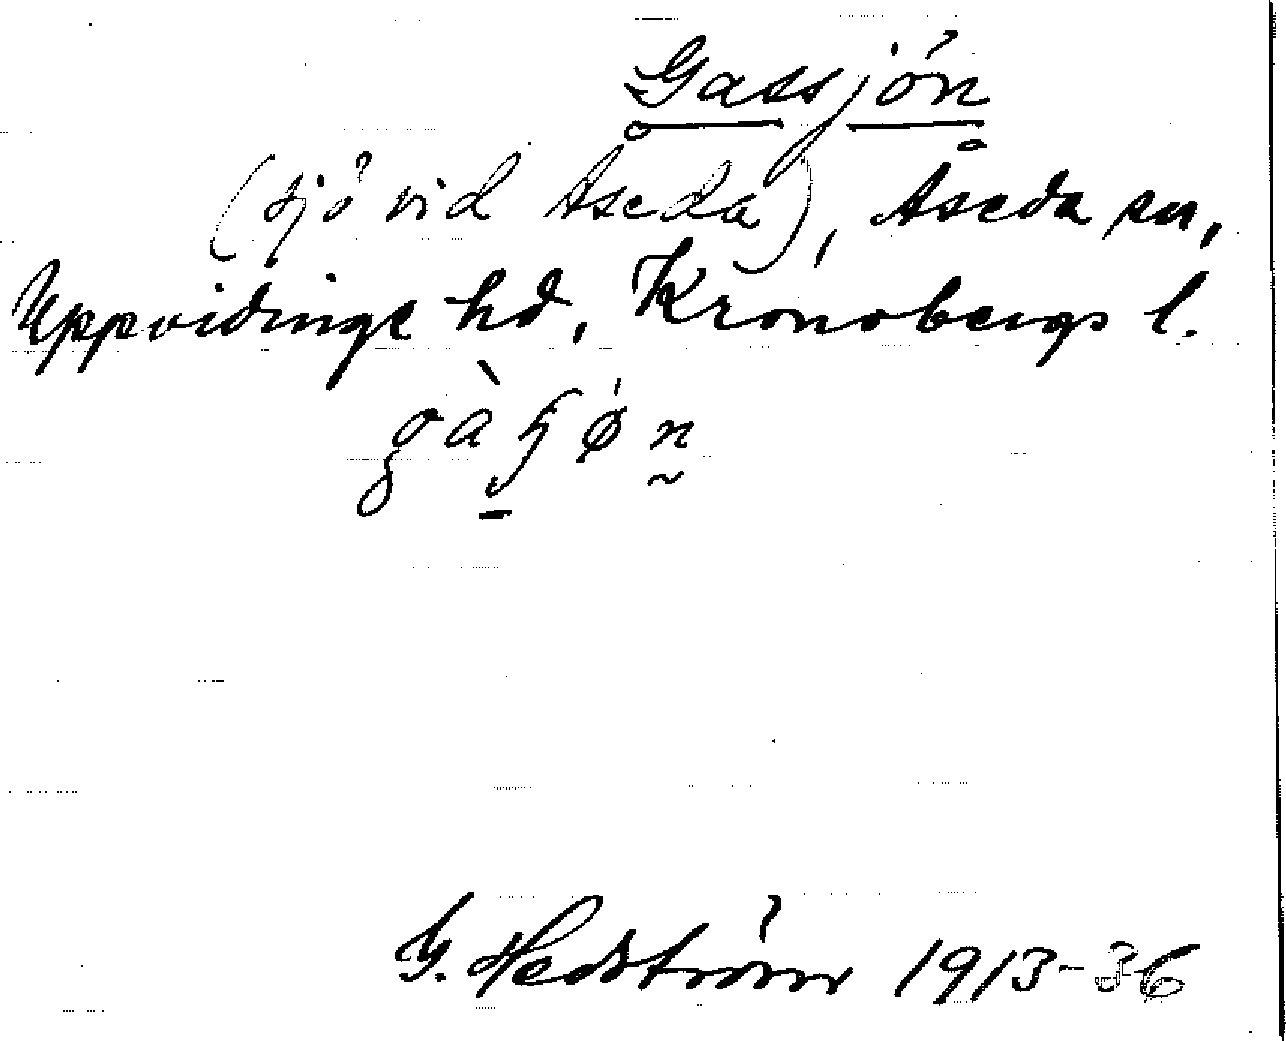 Gassjön
(sjö vid Åseda), Åseda sn,
Uppvidinge hd, Kronobergs l.
G. Hedström 1913-36